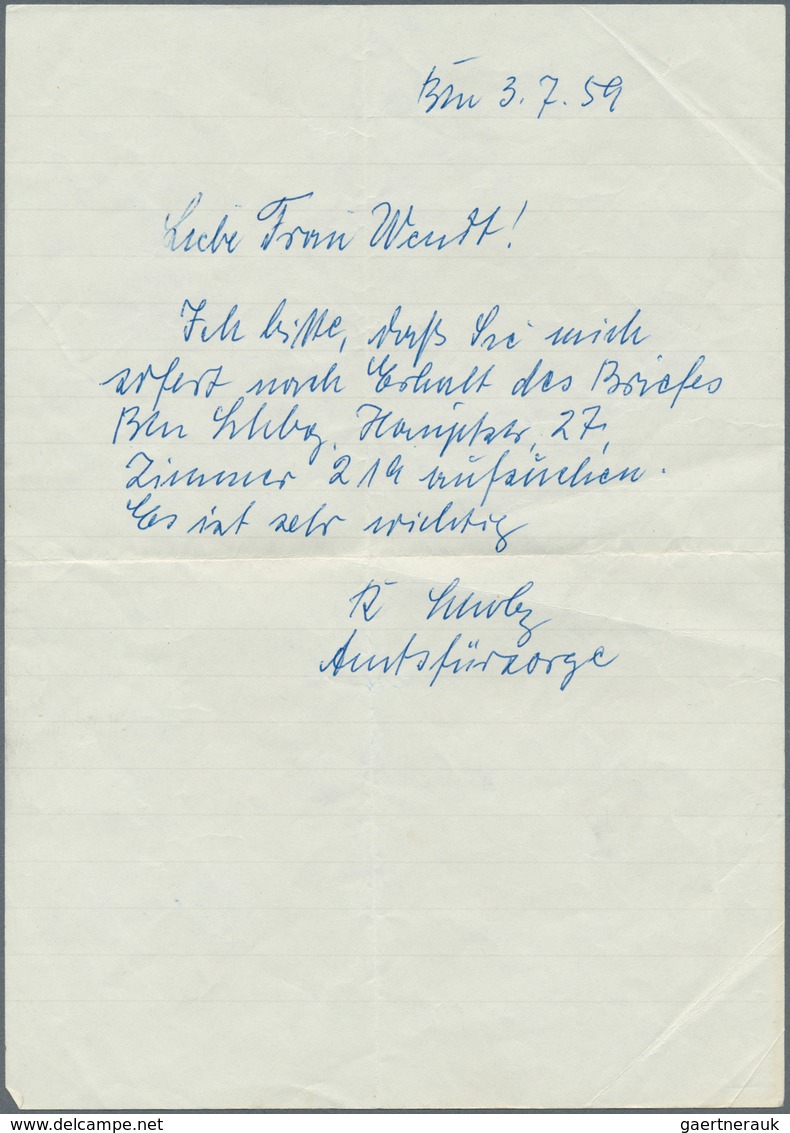 Bln 3.7.59
Liebe Frau Wendt!
Ich bitte, daß Sie mich
sofort nach Erhalt des Briefes
Bln Schbg, Hauptstr. 27,
Zimmer 219 aufsuchen.
Es ist sehr wichtig
Amtsfürsorge
gaertnerauk
delcampe.net